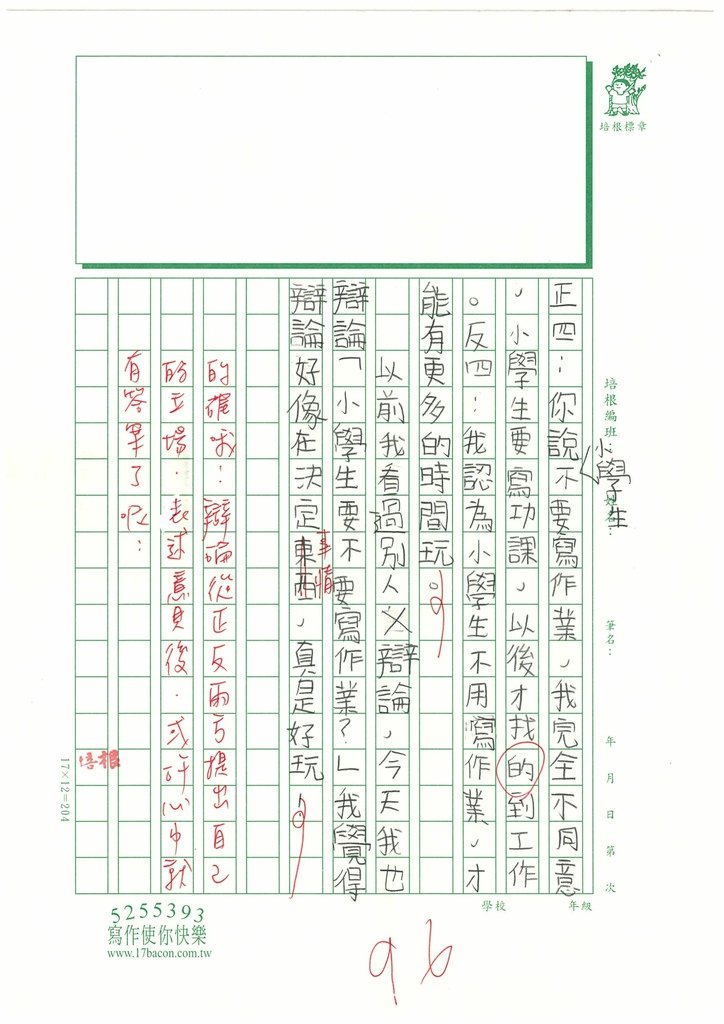 培根標章
培根編班：
姓名：
筆名：
年 月 日 第 次
小學生
正四：你說不要寫作業，我完全不同意
，小學生要寫功課，以後才找的到工作
。反四：我認為小學生不用寫作業，才
能有更多的時間玩。
以前我看過別人辯論，今天我也
辯論「小學生要不要寫作業？」我覺得
辯論好像在決定東西，真是好玩
事情
的確哦！辯論從正反兩方提出自己
的立場，表述意見後，或許心中就
有答案了呢！
培根
17×12=204
學校 年級
5255393
寫作使你快樂
www.17bacon.com.tw
96